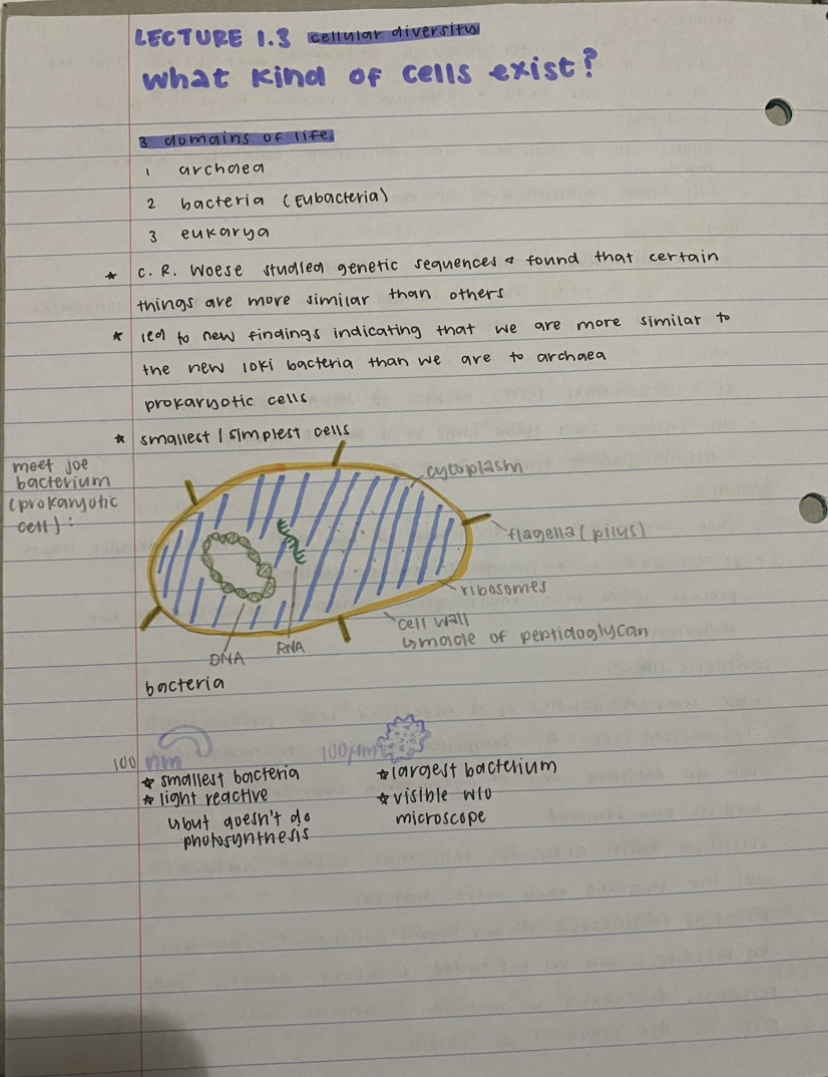 LECTURE 1.3 cellular diversity
What kind of cells exist?
3 domains of life
1 archaea
2 bacteria (Eubacteria)
3 eukarya
* C. R. Woese studied genetic sequences & found that certain
things are more similar than others
* led to new findings indicating that we are more similar to
the new loki bacteria than we are to archaea
prokaryotic cells
* smallest / simplest cells
meet joe
bacterium
(prokaryotic
cell):
cytoplasm
flagella (pilus)
ribosomes
cell wall
↳ made of peptidoglycan
DNA
RNA
bacteria
100 nm
* smallest bacteria
* light reactive
↳ but doesn't do
photosynthesis
100μm
* largest bacterium
* visible w/o
microscope